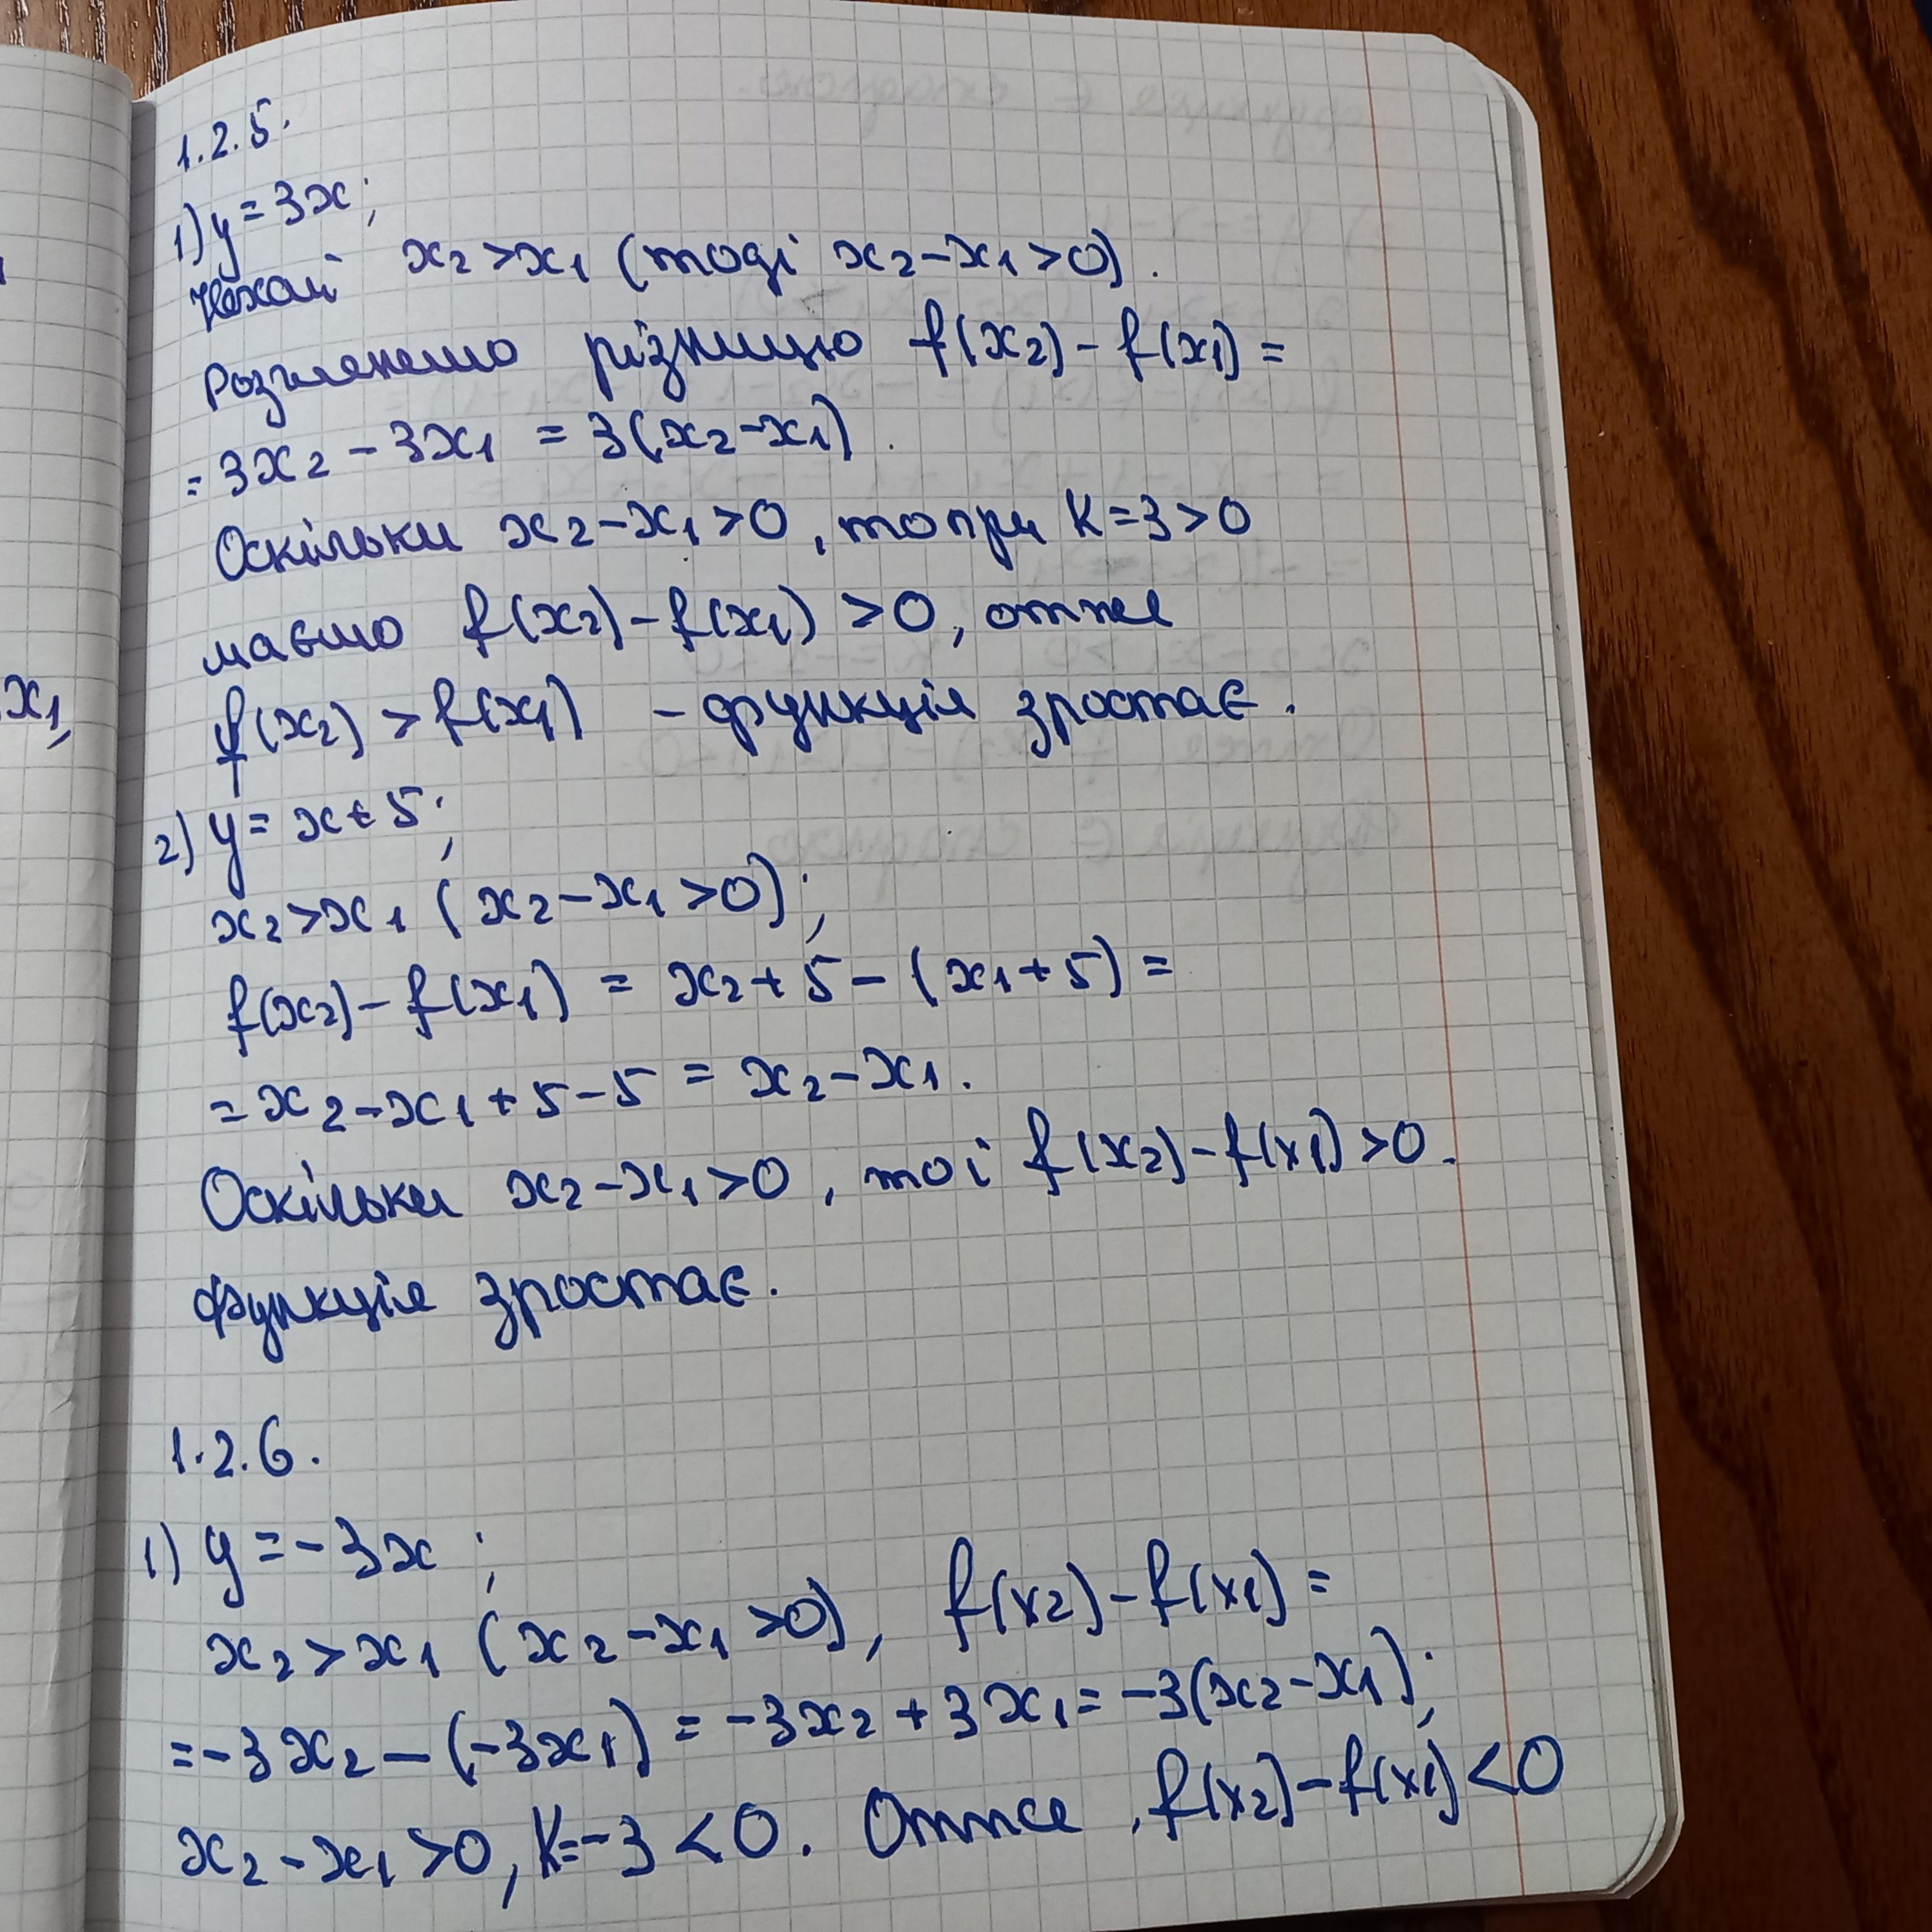 x₁,
1.2.5.
1) y = 3x;
Нехай x₂ > x₁ (тоді x₂ - x₁ > 0).
Розглянемо різницю f(x₂) - f(x₁) =
= 3x₂ - 3x₁ = 3(x₂ - x₁).
Оскільки x₂ - x₁ > 0, то при K = 3 > 0
маємо f(x₂) - f(x₁) > 0, отже
f(x₂) > f(x₁) - функція зростає.
2) y = x + 5;
x₂ > x₁ (x₂ - x₁ > 0);
f(x₂) - f(x₁) = x₂ + 5 - (x₁ + 5) =
= x₂ - x₁ + 5 - 5 = x₂ - x₁.
Оскільки x₂ - x₁ > 0, то і f(x₂) - f(x₁) > 0.
Функція зростає.
1.2.6.
1) y = -3x;
x₂ > x₁ (x₂ - x₁ > 0), f(x₂) - f(x₁) =
= -3x₂ - (-3x₁) = -3x₂ + 3x₁ = -3(x₂ - x₁);
x₂ - x₁ > 0, K = -3 < 0. Отже, f(x₂) - f(x₁) < 0